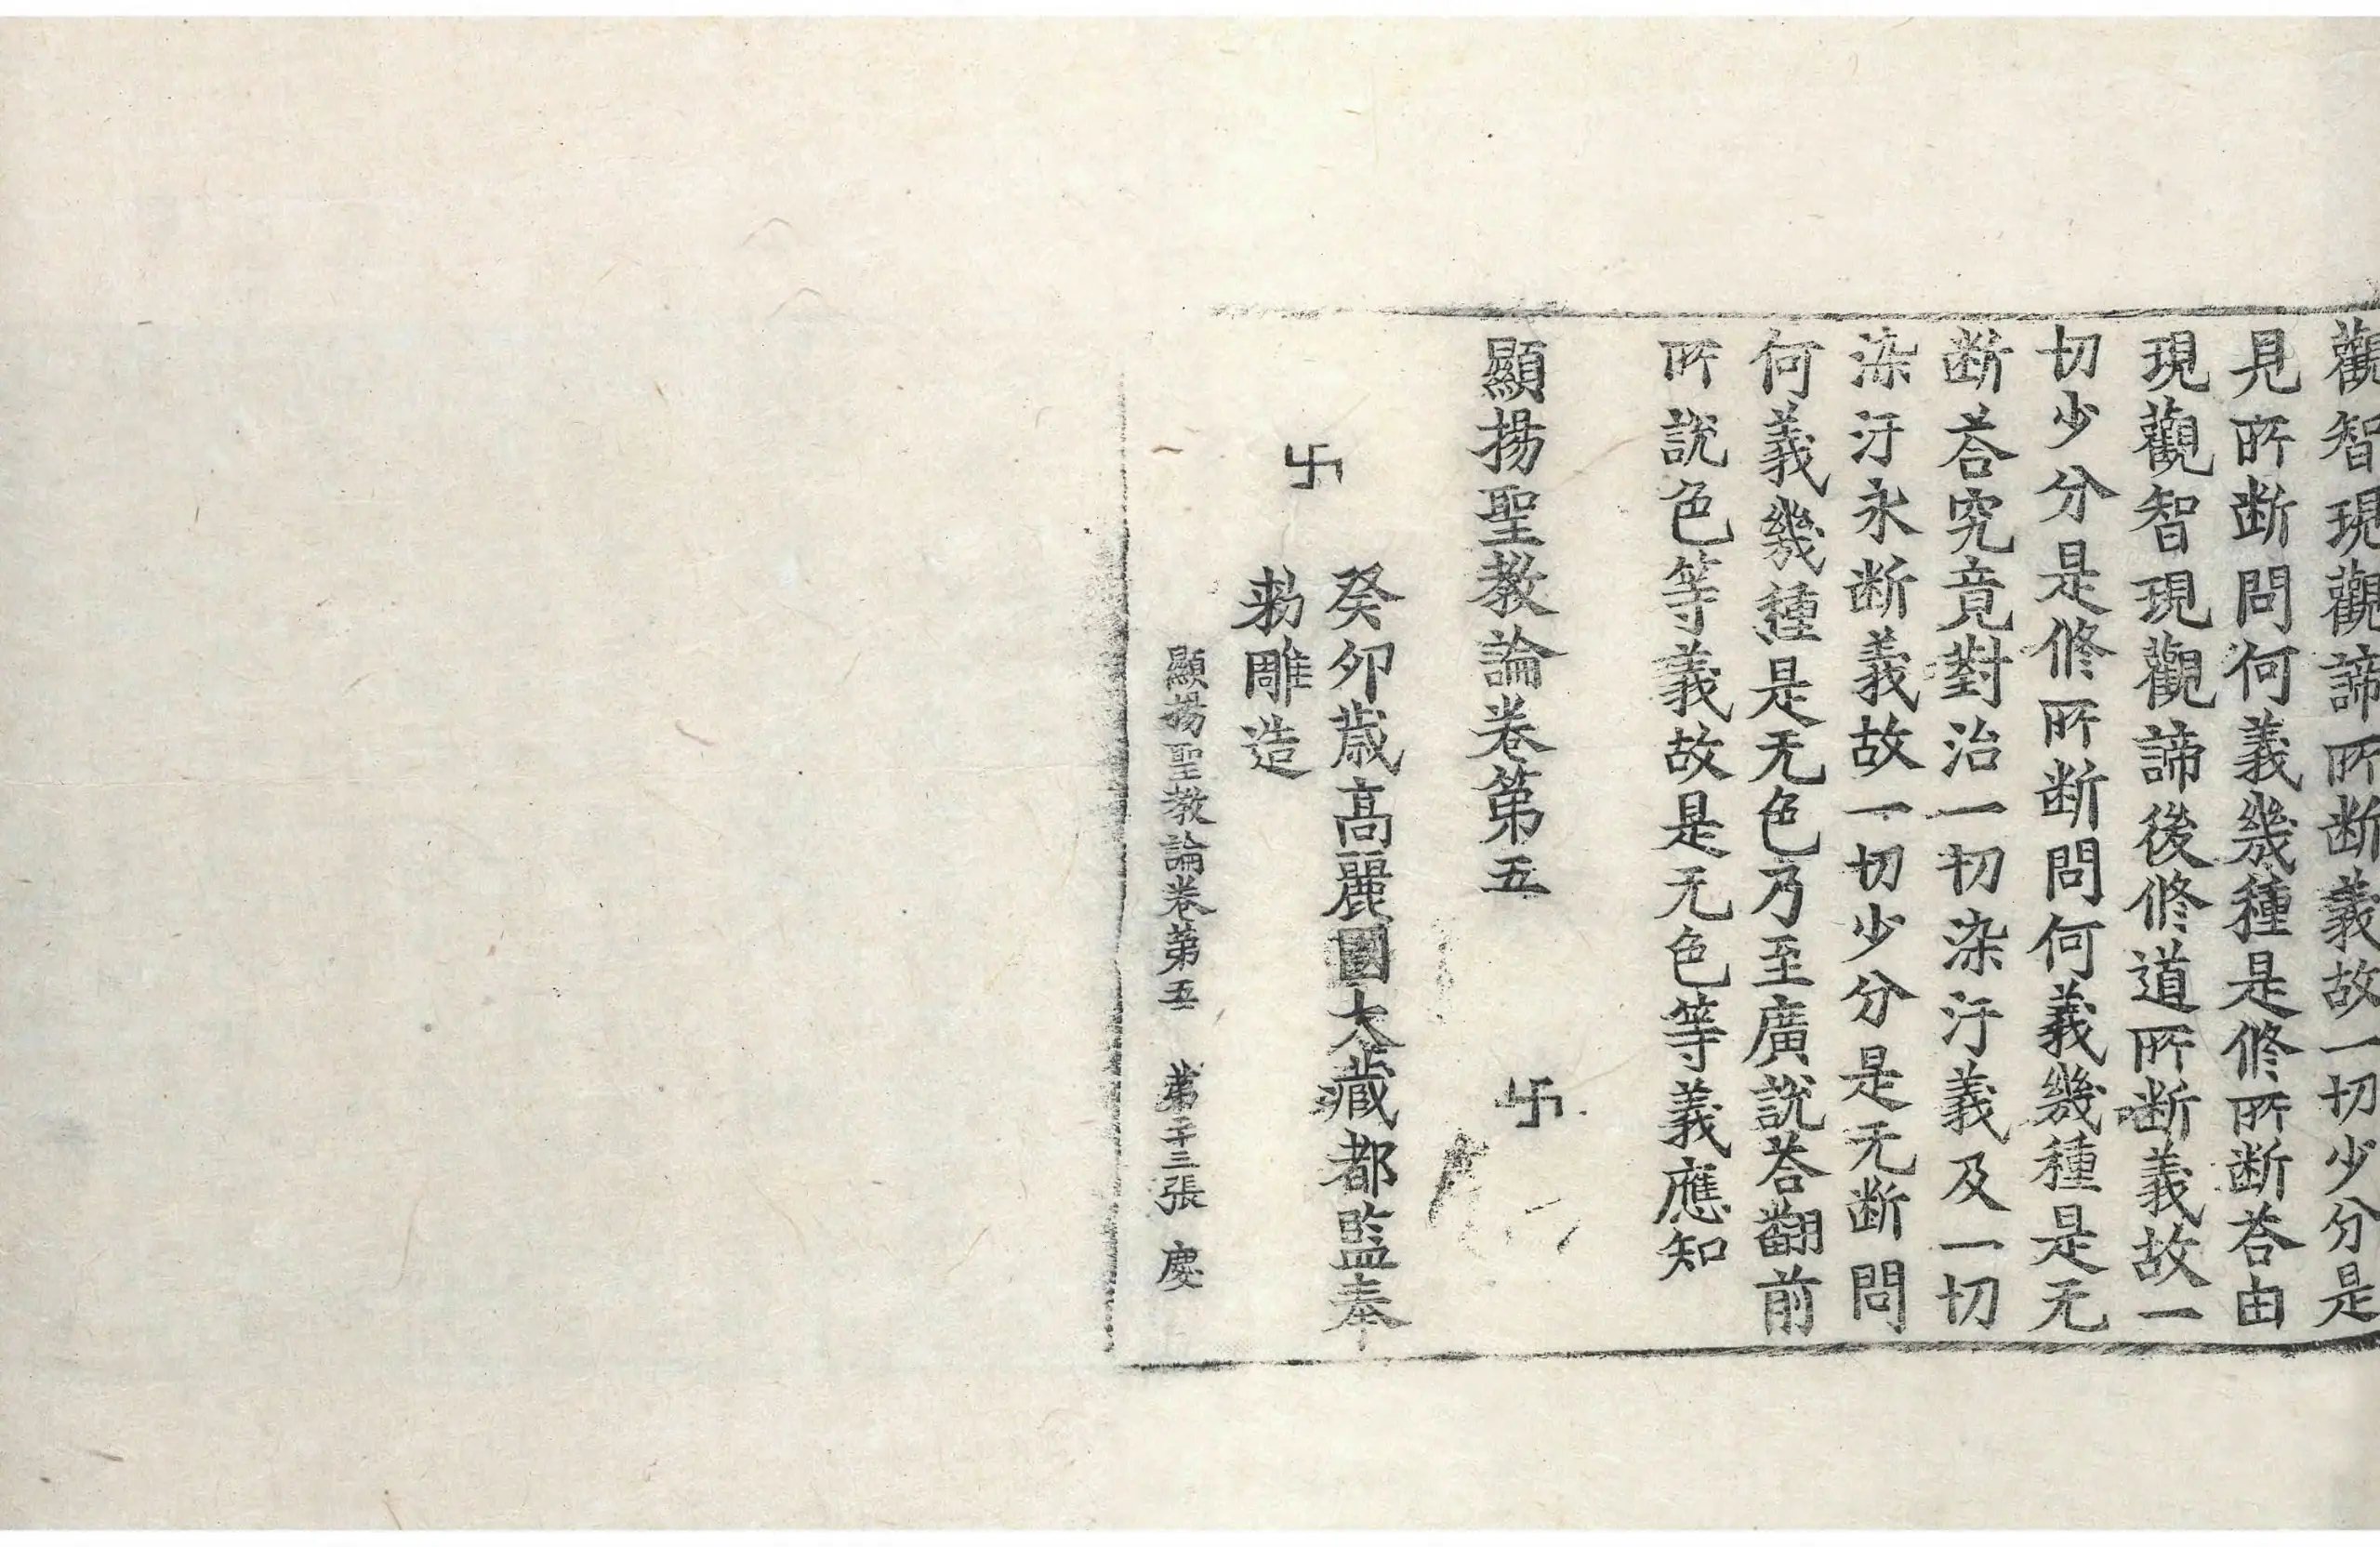 觀智現觀諦所断義故一切少分是
見所断問何義幾種是修所断荅由
現觀智現觀諦後修道所断義故一
切少分是修所断問何義幾種是无
断荅究竟對治一切染汙義及一切
染汙永断義故一切少分是无断問
何義幾種是无色乃至廣說荅翻前
所說色等義故是无色等義應知
顯揚聖教論卷第五 卐
癸卯歲高麗國大藏都監奉
卐 勑雕造
顯揚聖教論卷第五 第二十三張 慶